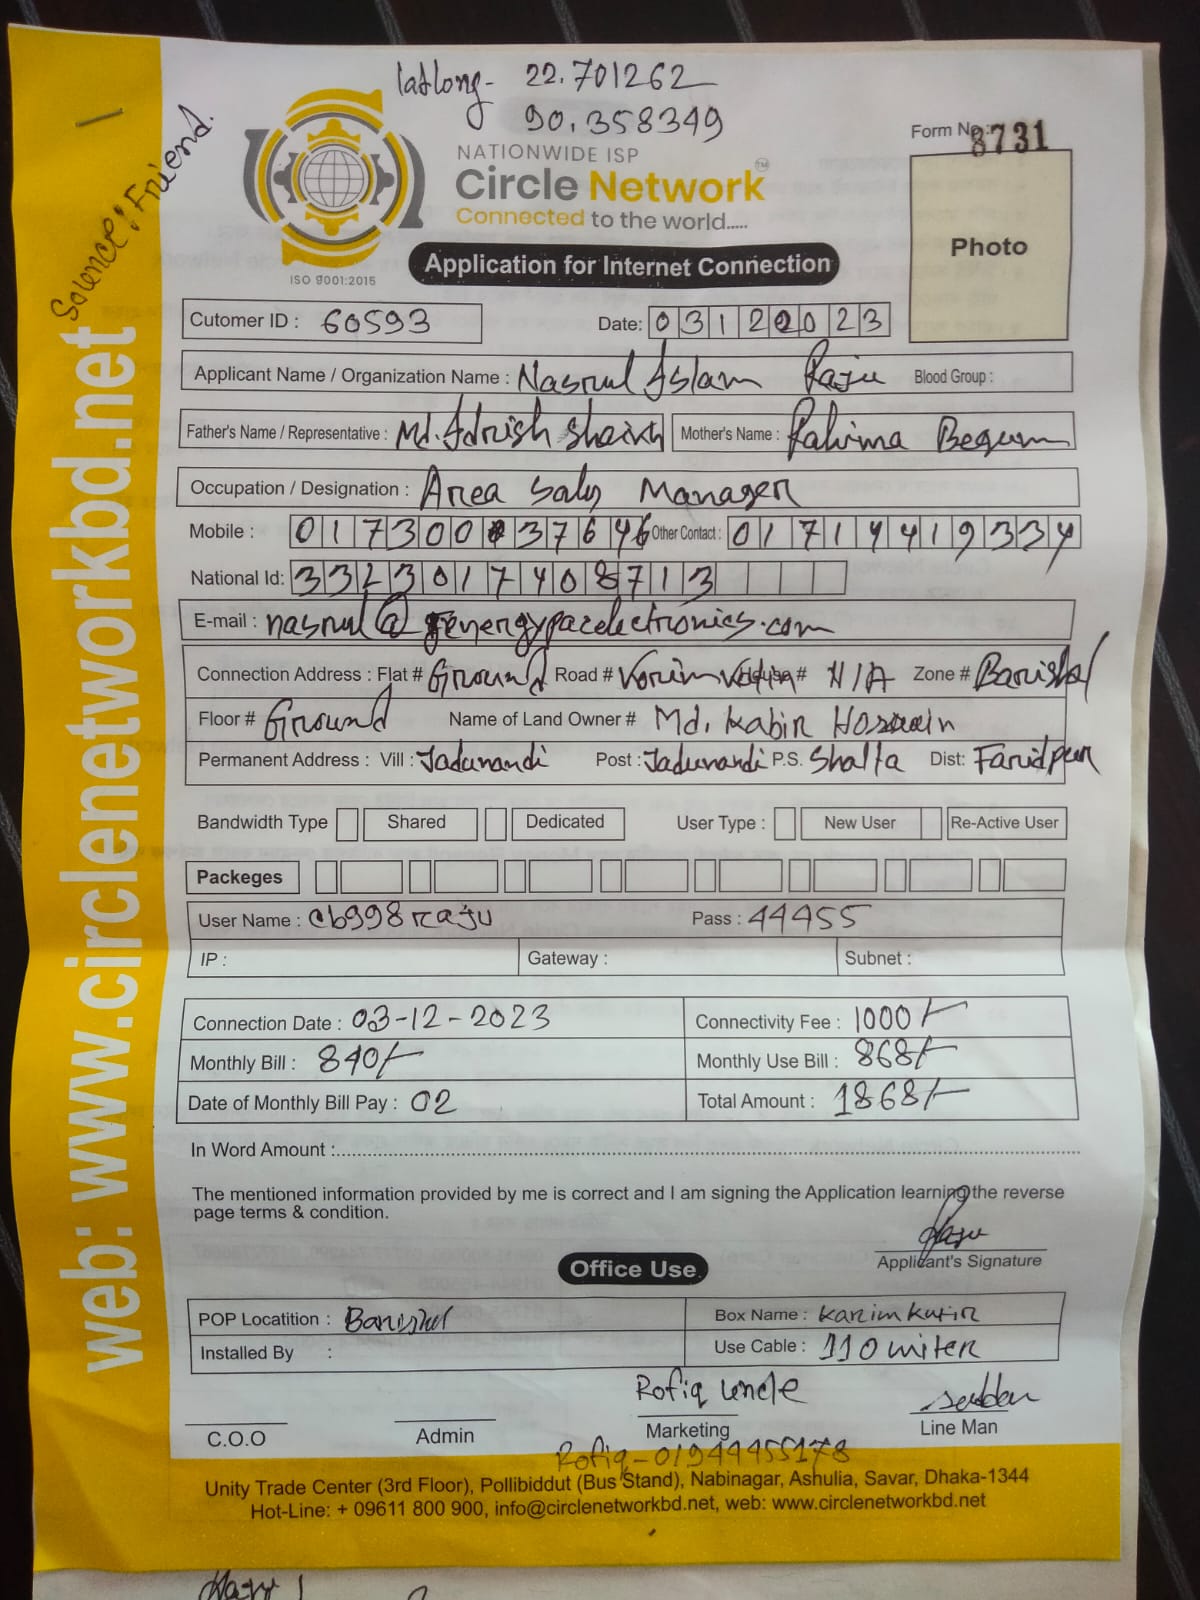 latlong- 22.701262
90.358349
Source: Friend.
NATIONWIDE ISP
Circle Network TM
Connected to the world.....
ISO 9001:2015
Form No: 8731
Photo
Application for Internet Connection
Cutomer ID : 60593 Date: 03122023
Applicant Name / Organization Name : Nasrul Islam Raju Blood Group :
Father's Name / Representative : Md. Idrish Shaikh Mother's Name : Rahima Begum
Occupation / Designation : Area Sales Manager
Mobile : Other Contact : 01714419334
National Id: 3323017408713
E-mail : nasrul@energypacelectronics.com
Connection Address : Flat # Ground Road # House # N/A Zone # Barishal
Floor # Ground Name of Land Owner # Md. Kabir Hossain
Permanent Address : Vill : Jadunandi Post : Jadunandi P.S. Shalta Dist: Faridpur
Bandwidth Type Shared Dedicated User Type : New User Re-Active User
Packeges
User Name : cb998raju Pass : 44455
IP : Gateway : Subnet :
Connection Date : 03-12-2023 Connectivity Fee : 1000/-
Monthly Bill : 840/- Monthly Use Bill : 868/-
Date of Monthly Bill Pay : 02 Total Amount : 1868/-
In Word Amount :
The mentioned information provided by me is correct and I am signing the Application learning the reverse
page terms & condition.
Raju
Applicant's Signature
Office Use
POP Locatition : Barishal Box Name : Karim Kutir
Installed By : Use Cable : 110 miter
Rofiq uncle
C.O.O Admin Marketing Line Man
Rofiq-01944455178
Unity Trade Center (3rd Floor), Pollibiddut (Bus Stand), Nabinagar, Ashulia, Savar, Dhaka-1344
Hot-Line: + 09611 800 900, info@circlenetworkbd.net, web: www.circlenetworkbd.net
web: www.circlenetworkbd.net